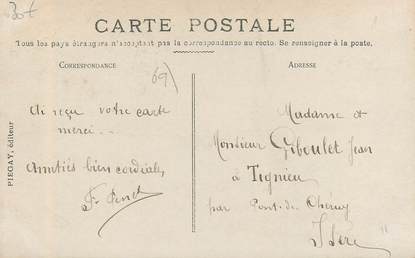 30€
CARTE POSTALE
Tous les pays étrangers n'acceptant pas la correspondance au recto. Se renseigner à la poste.
CORRESPONDANCE
69)
ADRESSE
PIEGAY, éditeur
Ai reçu votre carte
merci...
Amitiés bien cordiales
Madame et
Monsieur Giboulet Jean
à Tignieu
par Pont-de-Chéruy
Isère